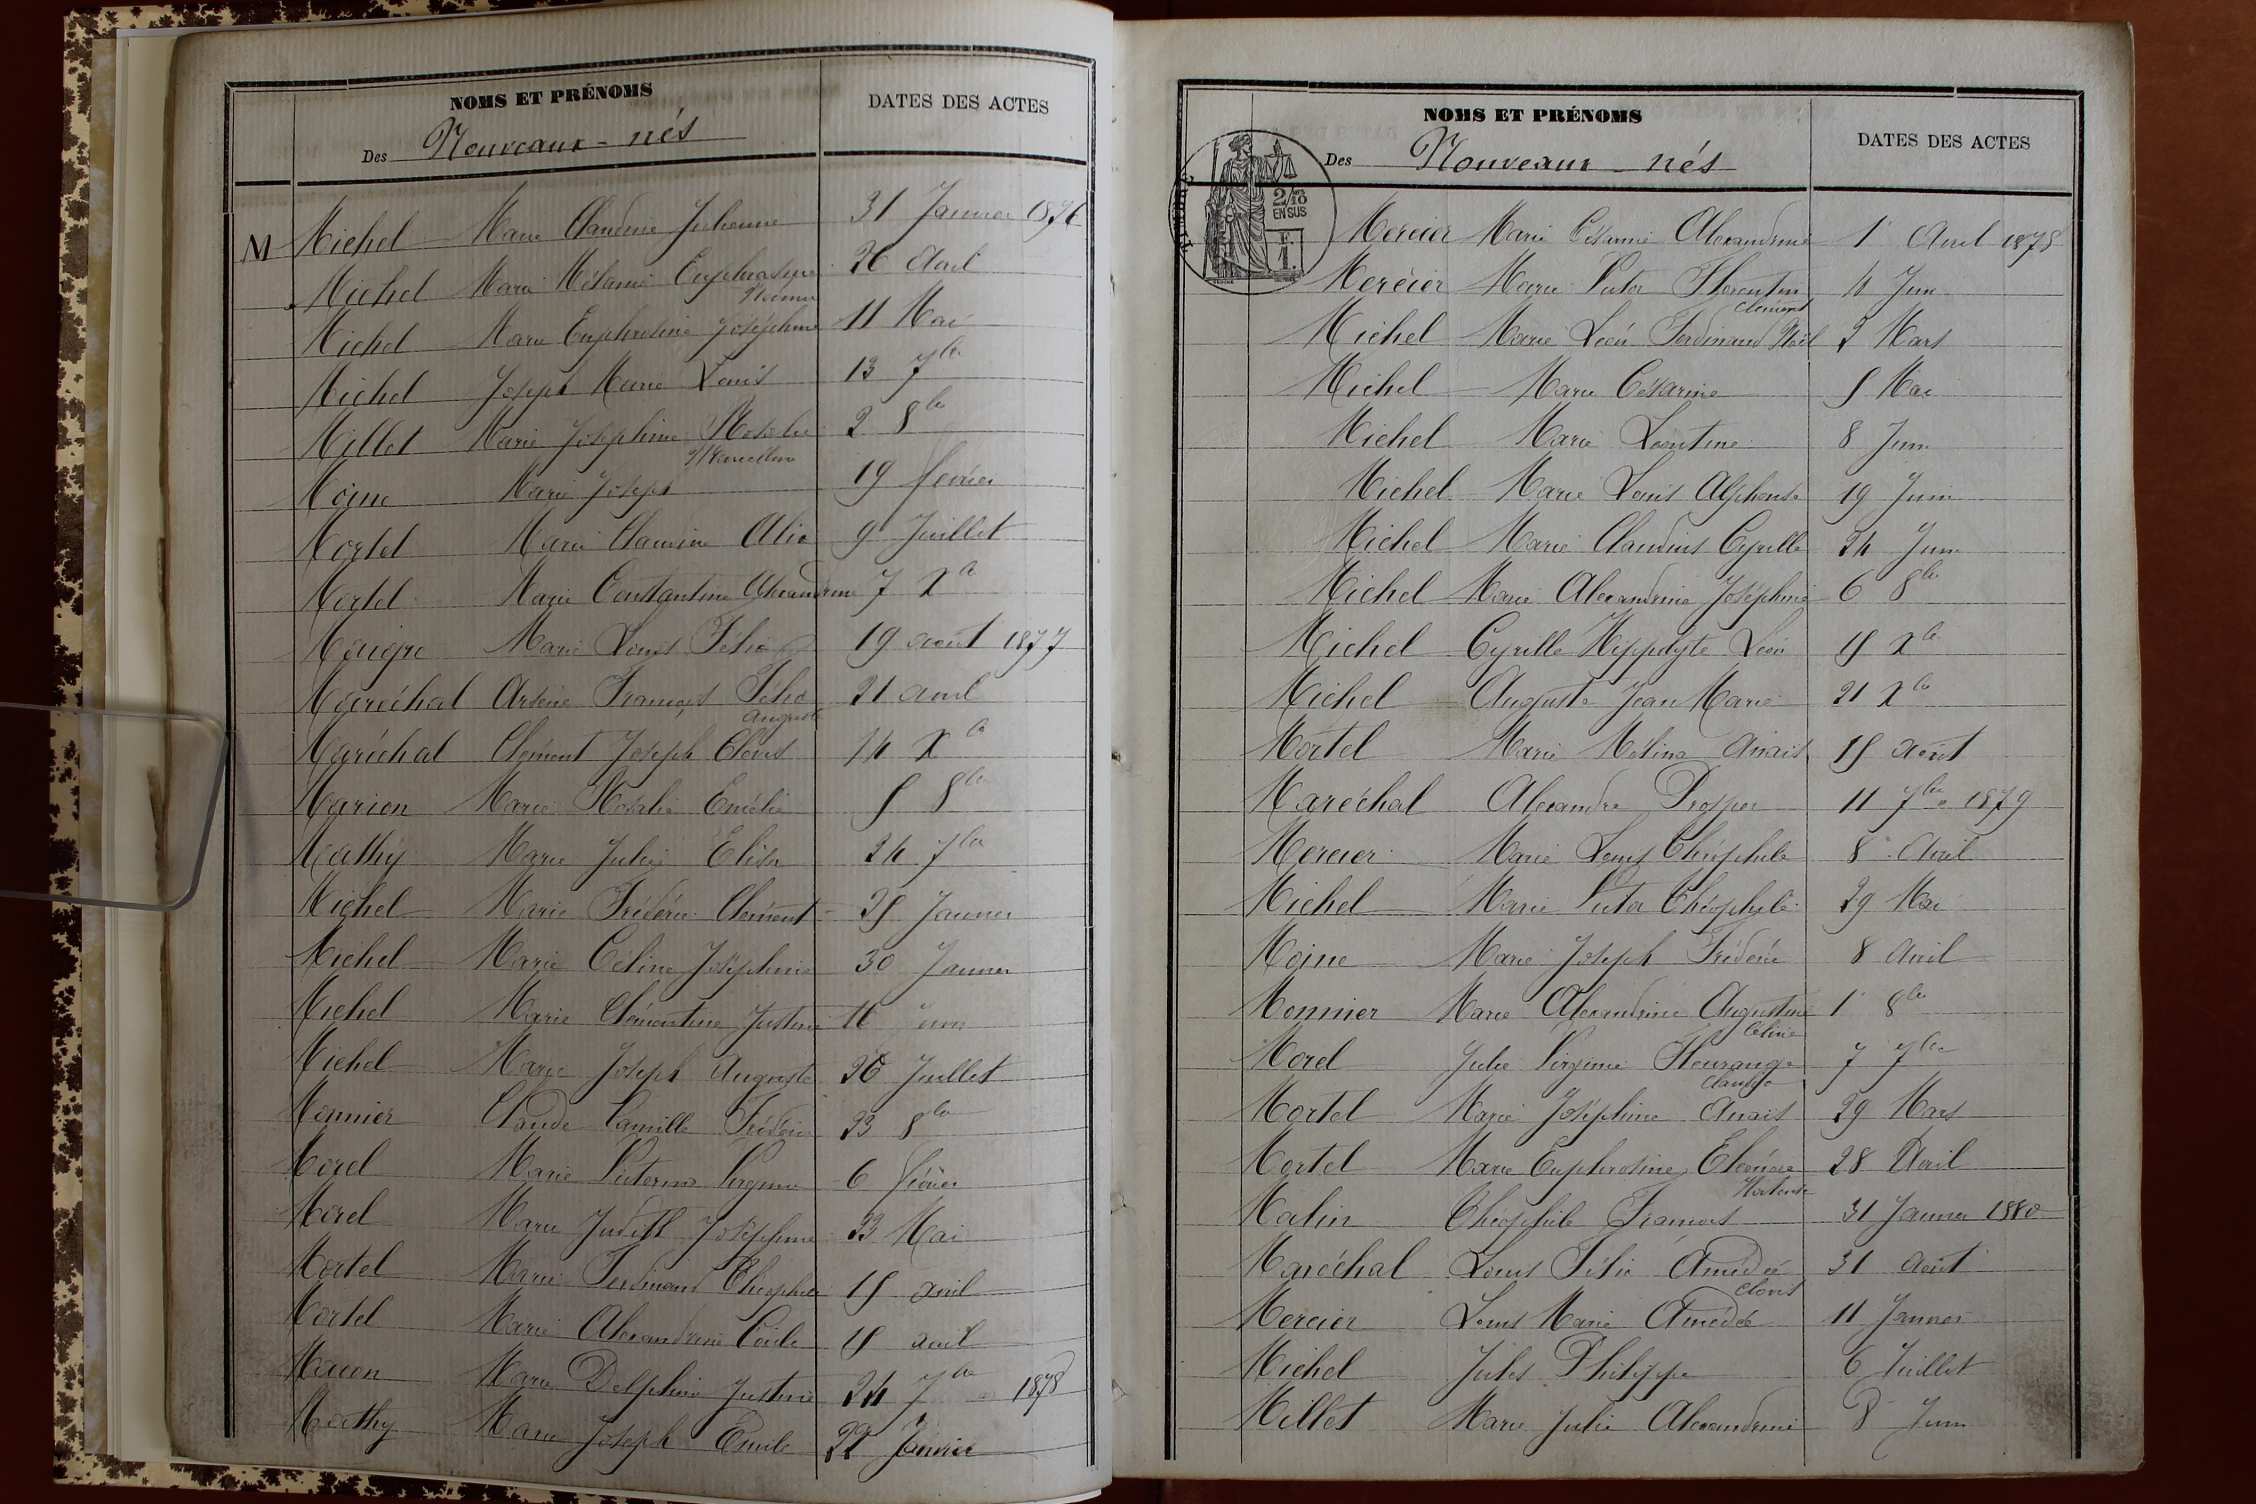 NOMS ET PRÉNOMS
DATES DES ACTES
Des Nouveaux-nés
M Michel Marie Claudine Julienne 31 Janvier 1876
Michel Marie Mélanie Euphrasine 26 Avril
Michel Marie Euphrosine Joséphine 11 Mai
Michel Joseph Marie Louis 13 7bre
Millet Marie Joséphine Rosalie 2 8bre
Moine Marie Joseph 19 février
Mortel Marie Claudine Alix 9 Juillet
Mortel Marie Constantine Alexandrine 7 Xbre
Marie Louis Félix 19 août 1877
Maréchal Arsène François Félix 21 avril
Auguste
Maréchal Clément Joseph Clovis 14 Xbre
Marion Marie Rosalie Emélie 5 8bre
Mathy Marie Julie Elisa 24 7bre
Michel Marie Frédéric Clément 25 Janvier
Michel Marie Céline Joséphine 30 Janvier
Michel Marie Clémentine Justine 16 Juin
Michel Marie Joseph Auguste 26 Juillet
Monnier Claude Camille Frédéric 23 8bre
Morel Marie Victorine Virginie 6 février
Morel Marie Judith Joséphine 23 Mai
Mortel Marie Ferdinand Théophile 15 avril
Mortel Marie Alexandrine Cécile 15 avril
Marie Delphine Justine 24 7bre 1878
Mathy Marie Joseph Emile 22 Janvier
NOMS ET PRÉNOMS
DATES DES ACTES
Des Nouveaux-nés
2/10
EN SUS
1
Mercier Marie Césarine Alexandrine 1 Avril 1878
Mercier Marie Victor Florentin 4 Juin
Clément
Michel Marie Léon Ferdinand Noël 2 Mars
Michel Marie Césarine 5 Mai
Michel Marie Léontine 8 Juin
Michel Marie Louis Alphonse 19 Juin
Michel Marie Claudius Cyrille 24 Juin
Michel Marie Alexandrine Joséphine 6 8bre
Michel Cyrille Hippolyte Léon 15 Xbre
Michel Auguste Jean Marie 21 Xbre
Mortel Marie Melina Anaïs 15 août
Maréchal Alexandre Prosper 11 7bre 1879
Mercier Marie Louis Théophile 8 Avril
Michel Marie Victor Théophile 29 Mai
Moine Marie Joseph Frédéric 8 avril
Monnier Marie Alexandrine Augustine 1 8bre
Céline
Morel Julie Virginie Fleurange 7 7bre
Mortel Marie Joséphine Anaïs 29 Mars
Mortel Marie Euphrosine Eléonore 28 Avril
Hortense
Malin Théophile François 31 Janvier 1880
Maréchal Louis Félix Amédée 31 août
Clovis
Mercier Louis Marie Amédée 11 Janvier
Michel Jules Philippe 6 Juillet
Millet Marie Julie Alexandrine 8 Juin